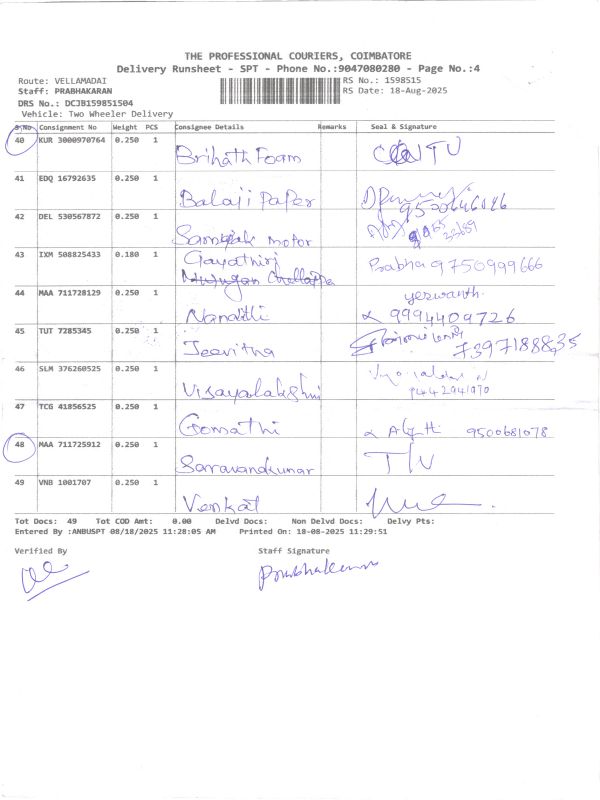 THE PROFESSIONAL COURIERS, COIMBATORE
Delivery Runsheet - SPT - Phone No.:9047080280 - Page No.:4
Route: VELLAMADAI RS No.: 1598515
Staff: PRABHAKARAN RS Date: 18-Aug-2025
DRS No.: DCJB159851504
Vehicle: Two Wheeler Delivery
S/No Consignment No Weight PCS Consignee Details Remarks Seal & Signature
40 KUR 3000970764 0.250 1 Brihath Foam
41 EDQ 16792635 0.250 1 Balaji Paper
9500646086
42 DEL 530567872 0.250 1 motor
43 IXM 508825433 0.180 1 Gayathiri Prabha 9750999666
44 MAA 711728129 0.250 1 Nandtli yeswanth.
9994409726
45 TUT 7285345 0.250 1 Jeevitha 7397188835
46 SLM 376260525 0.250 1 Vijayalakshmi
9442941970
47 TCG 41856525 0.250 1 Gomathi 9500681078
48 MAA 711725912 0.250 1 Saravanakumar
49 VNB 1001707 0.250 1 Venkat
Tot Docs: 49 Tot COD Amt: 0.00 Delvd Docs: Non Delvd Docs: Delvy Pts:
Entered By :ANBUSPT 08/18/2025 11:28:05 AM Printed On: 18-08-2025 11:29:51
Verified By Staff Signature
Prabhakaran